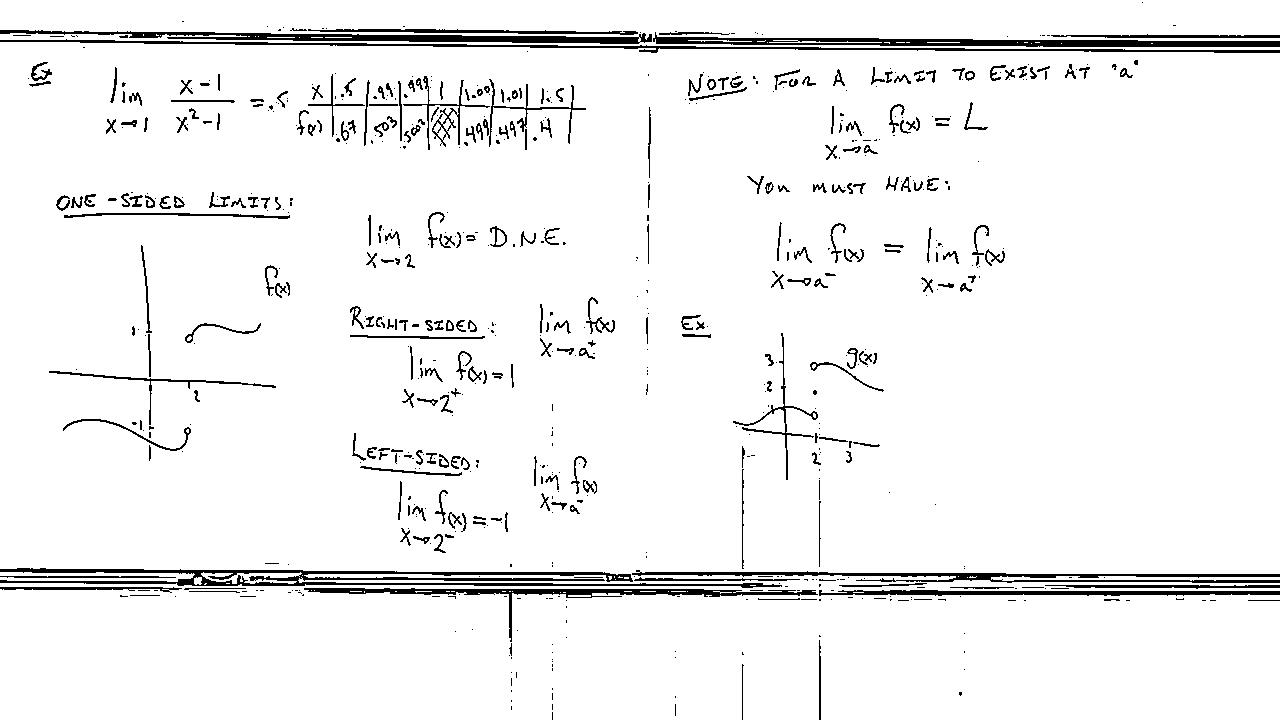 Ex
lim x→1 (x-1)/(x²-1) = .5
x | .5 | .99 | .999 | 1 | 1.001 | 1.01 | 1.5
f(x) | .67 | .503 | .5003 | | .499 | .497 | .4
ONE-SIDED LIMITS:
lim x→2 f(x) = D.N.E.
f(x)
1
2
-1
RIGHT-SIDED: lim x→a⁺ f(x)
lim x→2⁺ f(x) = 1
LEFT-SIDED: lim x→a⁻ f(x)
lim x→2⁻ f(x) = -1
NOTE: FOR A LIMIT TO EXIST AT "a"
lim x→a f(x) = L
YOU MUST HAVE:
lim x→a⁻ f(x) = lim x→a⁺ f(x)
Ex
g(x)
3
2
1
2 3